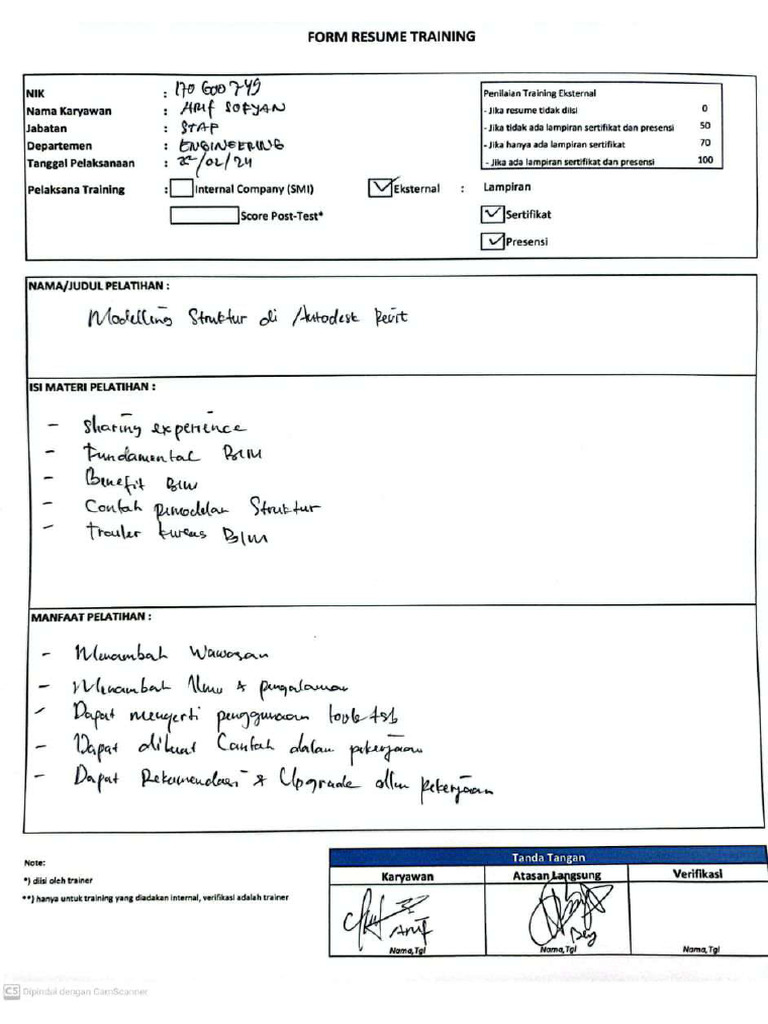 FORM RESUME TRAINING
NIK : 170600749
Nama Karyawan : Arif SOFYAN
Jabatan : STAF
Departemen : ENGINEERING
Tanggal Pelaksanaan : 22/02/24
Penilaian Training Eksternal
- Jika resume tidak diisi 0
- Jika tidak ada lampiran sertifikat dan presensi 50
- Jika hanya ada lampiran sertifikat 70
- Jika ada lampiran sertifikat dan presensi 100
Pelaksana Training : Internal Company (SMI) Eksternal : Lampiran
Score Post-Test* Sertifikat
Presensi
NAMA/JUDUL PELATIHAN :
Modelling Struktur di Autodesk Revit
ISI MATERI PELATIHAN :
- Sharing experience
- Fundamental BIM
- Benefit BIM
- Contoh pemodelan Struktur
- BIM
MANFAAT PELATIHAN :
- Menambah Wawasan
- Menambah Ilmu & pengalaman
- Dapat mengerti penggunaan tools tsb
- Dapat dibuat Contoh dalam pekerjaan
- Dapat Rekomendasi & Upgrade dlm pekerjaan
Note:
*) diisi oleh trainer
**) hanya untuk training yang diadakan internal, verifikasi adalah trainer
Tanda Tangan
Karyawan Atasan Langsung Verifikasi
Arif
Nama,Tgl Nama,Tgl Nama,Tgl
CS Dipindai dengan CamScanner